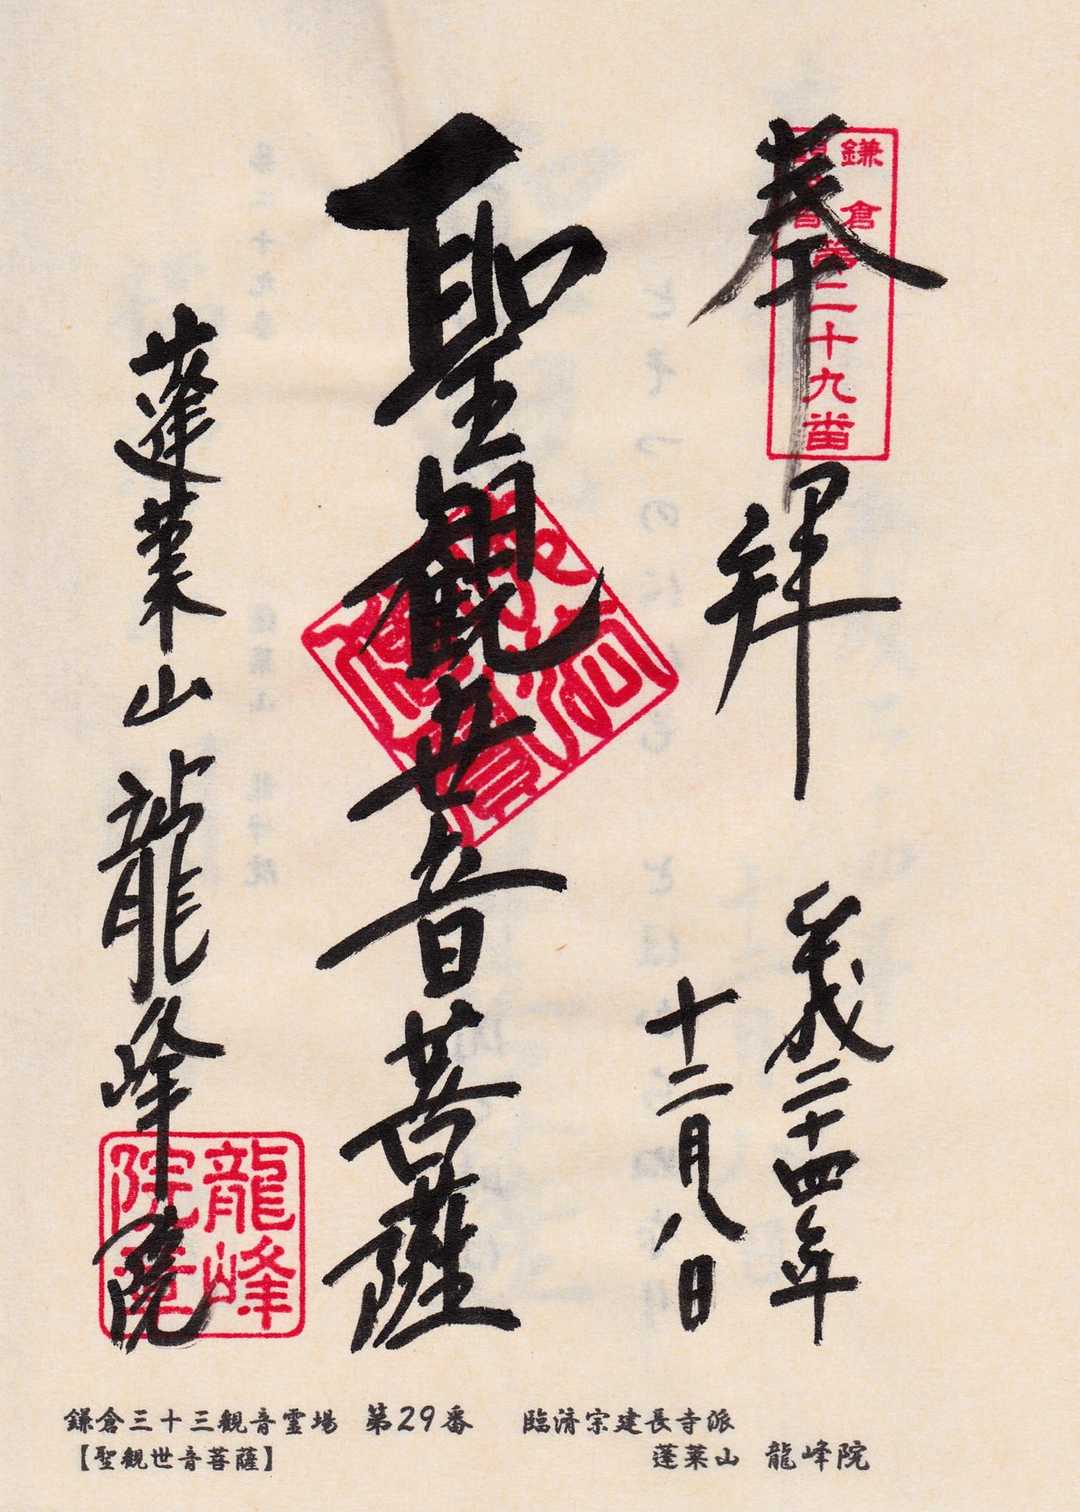 奉拝
鎌倉
第二十九番
平成二十四年
十二月八日
聖観世音菩薩
蓬莱山龍峰院
龍峰
院
鎌倉三十三観音霊場 第29番
【聖観世音菩薩】
臨済宗建長寺派
蓬莱山 龍峰院